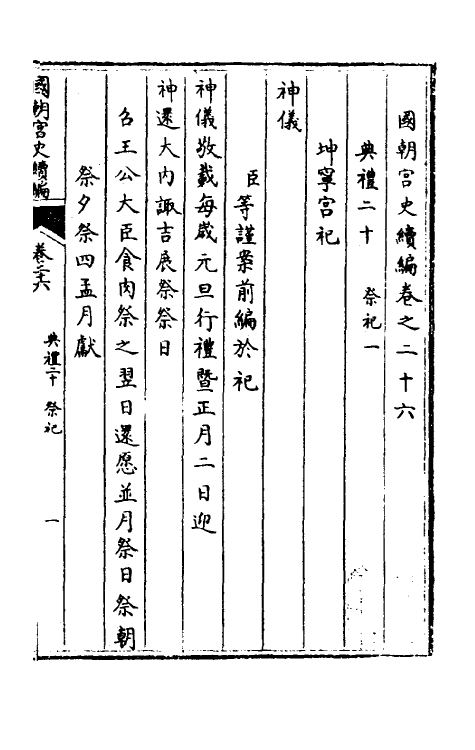 國朝宮史續編卷之二十六
典禮二十　祭祀一
坤寧宮祀
神儀
臣等謹案前編於祀
神儀敬載每歲元旦行禮暨正月二日迎
神還大內諏吉展祭祭日
召王公大臣食肉祭之翌日還愿並月祭日祭朝
祭夕祭四孟月獻
國朝宮史續編
卷二十六
典禮二十　祭祀
一